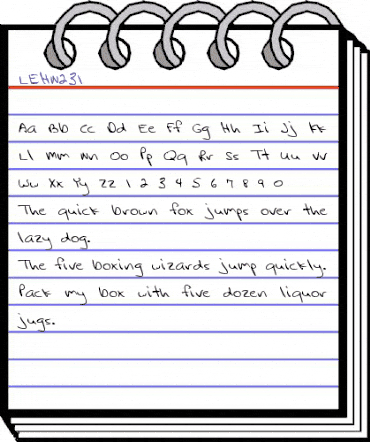 LEHN231
Aa Bb Cc Dd Ee Ff Gg Hh Ii Jj Kk
Ll Mm Nn Oo Pp Qq Rr Ss Tt Uu Vv
Ww Xx Yy Zz 1 2 3 4 5 6 7 8 9 0
The quick brown fox jumps over the
lazy dog.
The five boxing wizards jump quickly.
Pack my box with five dozen liquor
jugs.